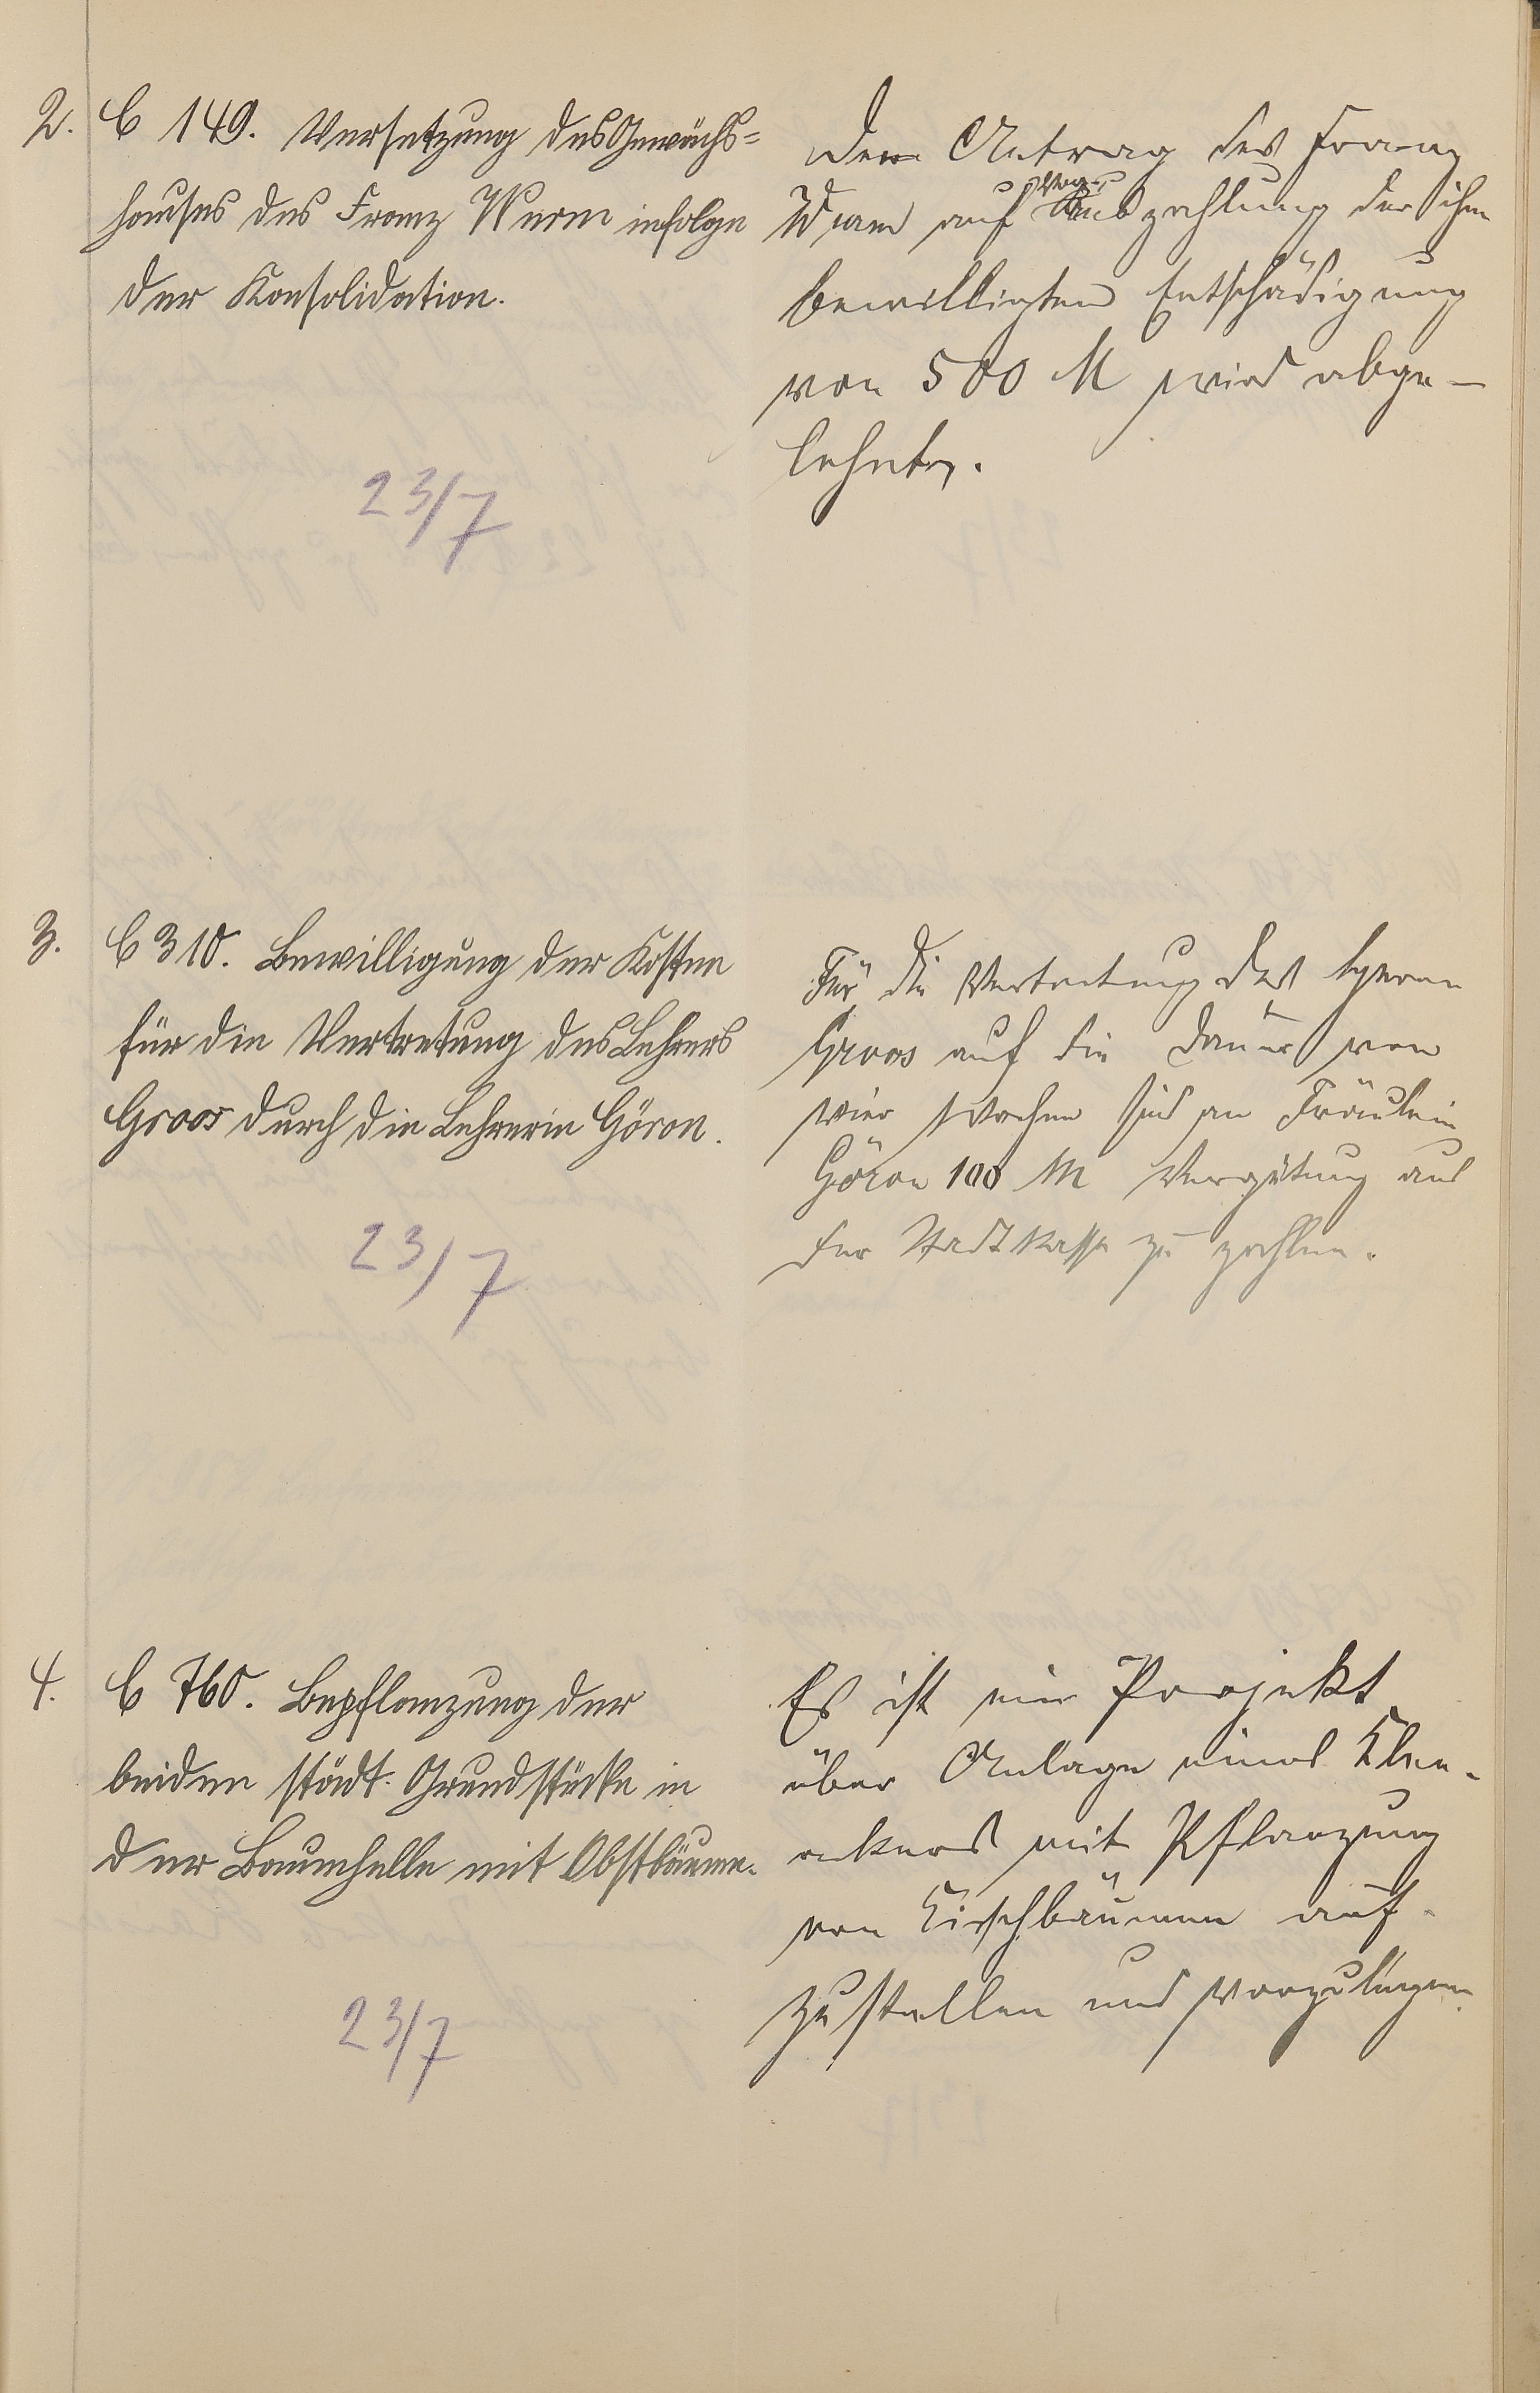 2. C 149. Versetzung des Gewächs=
hauses des Franz Wurm infolge
der Konsolidation.
23/7
Der Antrag des Franz
Wurm auf Auszahlung der ihm
bewilligten Entschädigung
von 500 M wird abge-
lehnt.
3. C 310. Bewilligung der Kosten
für die Vertretung des Lehrers
Groos durch die Lehrerin Göron.
23/7
Für die Vertretung des Herrn
Groos auf die Dauer von
vier Wochen sind an Fräulein
Göron 100 M Vergütung aus
der Stadtkasse zu zahlen.
4. C 760. Bepflanzung der
beiden städt. Grundstücke in
der Baumhelle mit Obstbäume.
23/7
Es ist ein Projekt
über Anlage eines Klee-
ackers mit Pflanzung
von Kirschbäumen auf-
zustellen und vorzulegen.